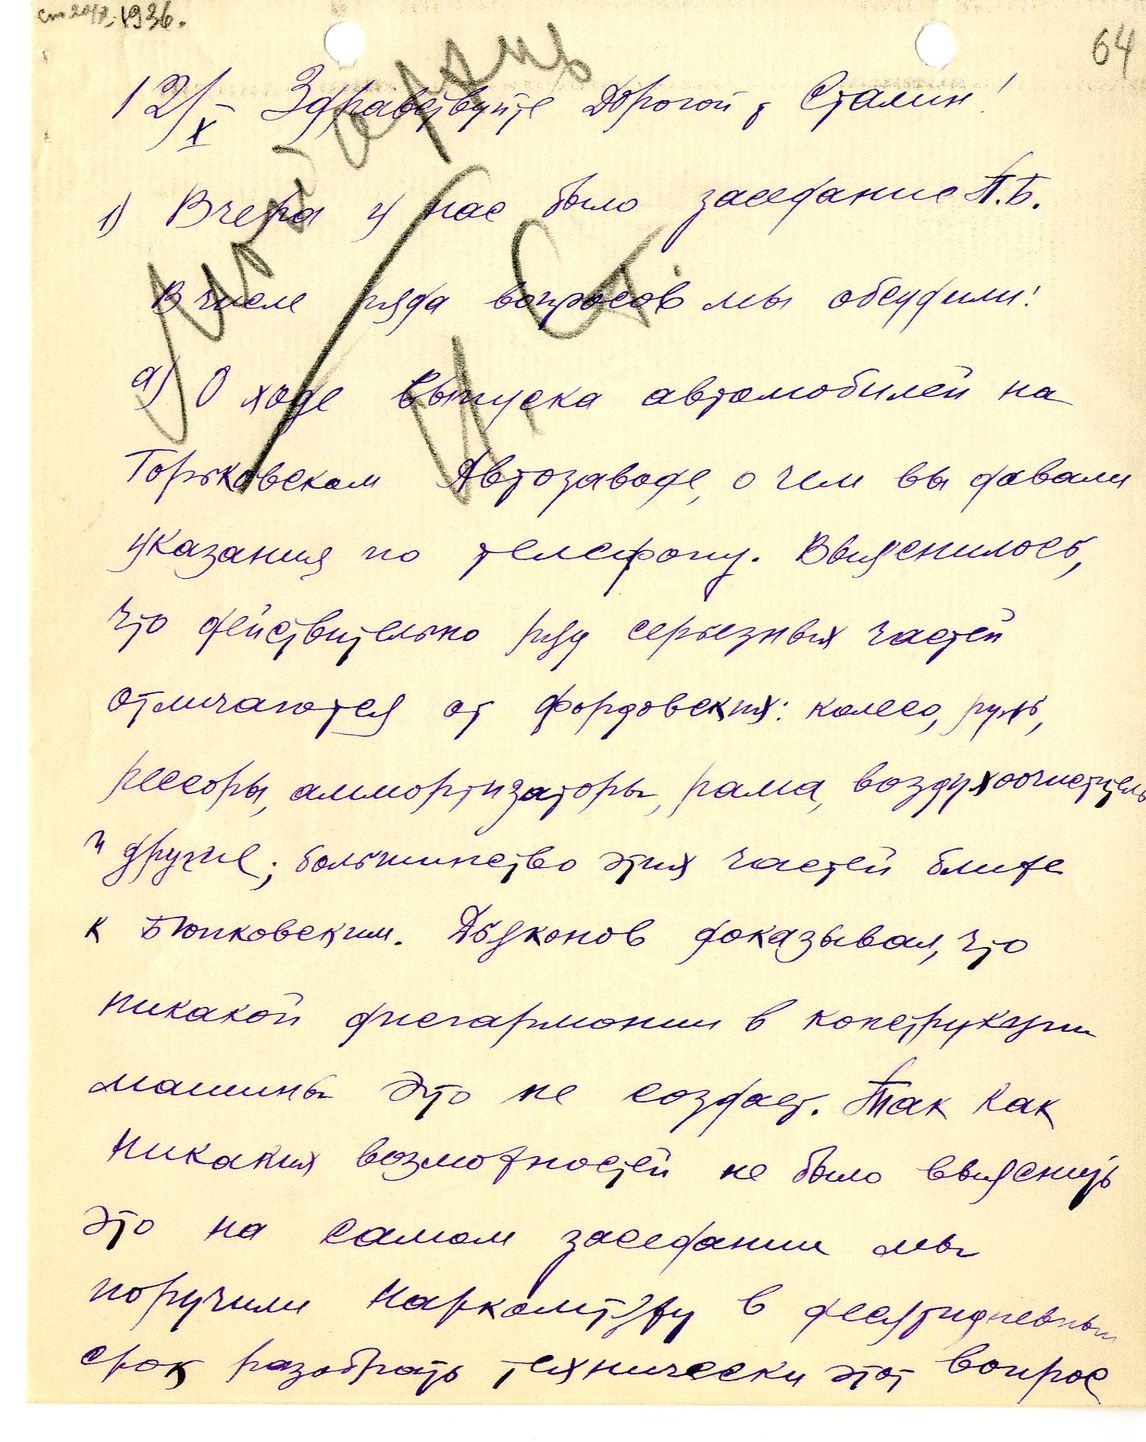 1936.
64
Мой архив
И. Ст.
12/X Здравствуйте Дорогой т Сталин!
1) Вчера у нас было заседание П.Б.
В числе ряда вопросов мы обсудили:
а) О ходе выпуска автомобилей на
Горьковском Автозаводе, о чем вы давали
указания по телефону. Выяснилось,
что действительно ряд серьезных частей
отличаются от фордовских: колесо, руль,
рессоры, аммортизаторы, рама, воздухоочиститель
и другие; большинство этих частей ближе
к Бюиковским. Дьяконов доказывал, что
никакой дисгармонии в конструкции
машины это не создает. Так как
никаких возможностей не было выяснить
это на самом заседании мы
поручили Наркомтяжу в десятидневный
срок разобрать технически этот вопрос